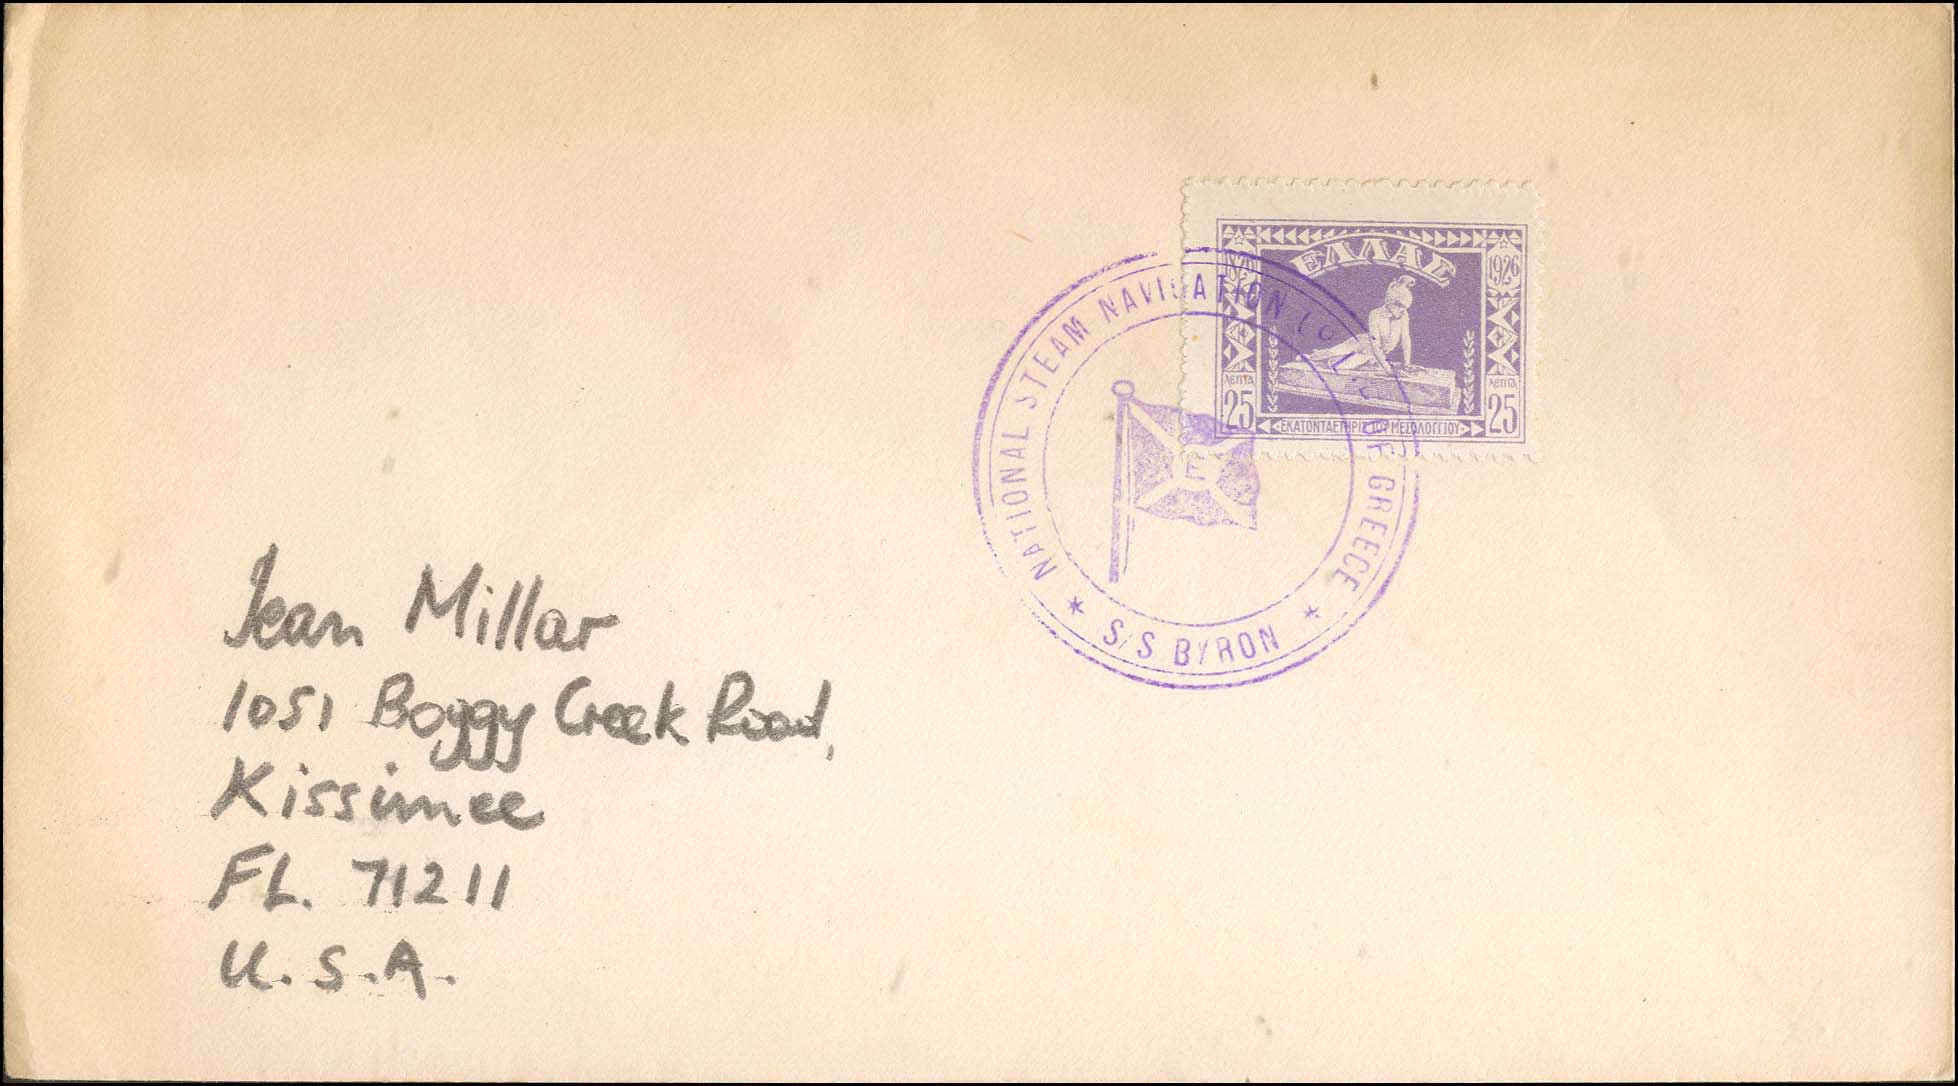 1826
ΕΛΛΑΣ
1926
ΛΕΠΤΑ
25
ΛΕΠΤΑ
25
ΕΚΑΤΟΝΤΑΕΤΗΡΙΣ ΤΟΥ ΜΕΣΟΛΟΓΓΙΟΥ
NATIONAL STEAM NAVIGATION CO. LTD. OF GREECE
E
★ S/S BYRON ★
Jean Millar
1051 Boggy Creek Road,
Kissimee
FL. 71211
U.S.A.